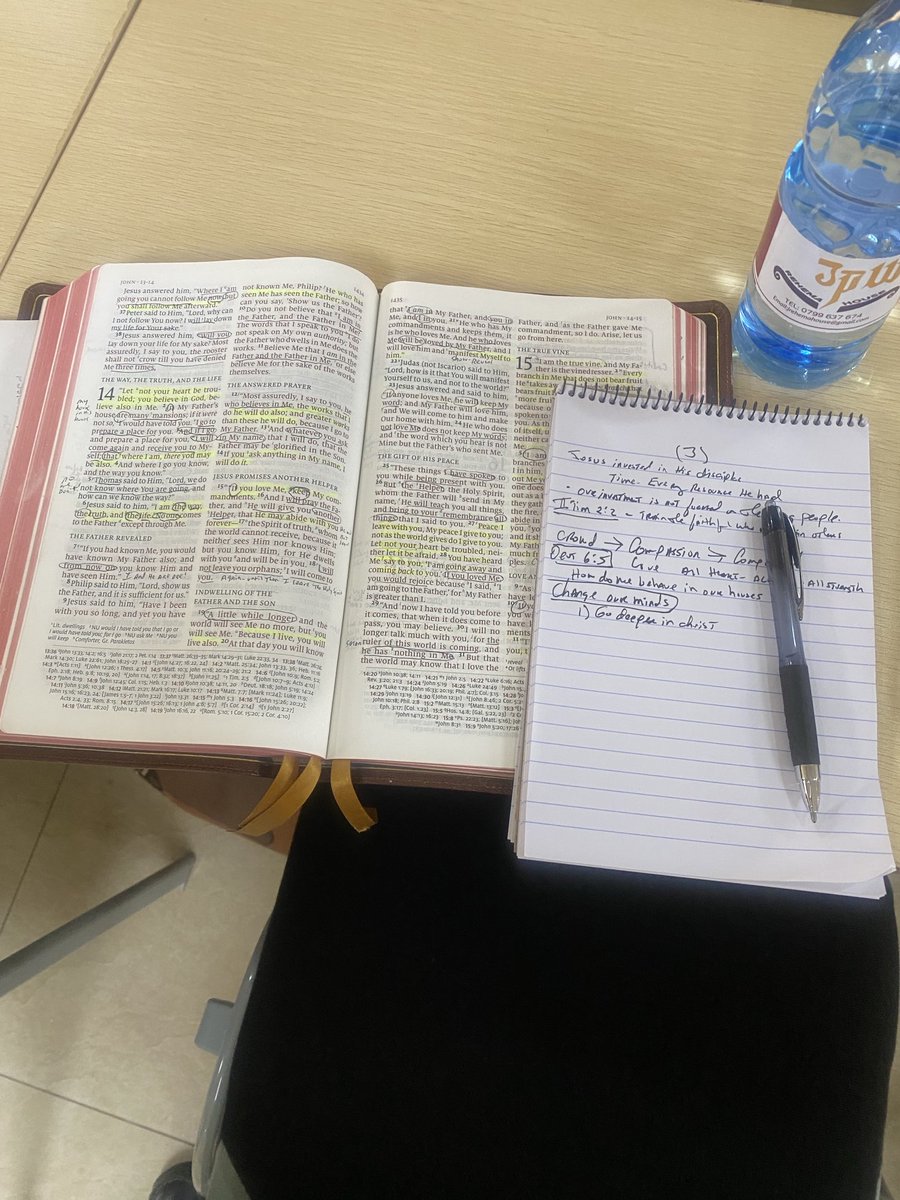 JOHN · 13-14
1434
Jesus answered him, "Where I am
going you cannot follow Me now, but
you shall follow Me afterward."
37 Peter said to Him, "Lord, why can
I not follow You now? I will lay down
my life for Your sake."
38 Jesus answered him, "Will you
lay down your life for My sake? Most
assuredly, I say to you, the rooster
shall not crow till you have denied
Me three times.
THE WAY, THE TRUTH, AND THE LIFE
14 "Let not your heart be trou-
bled; you believe in God, be-
lieve also in Me. 2 In My Father's
house are many mansions; if it were
not so, I would have told you. I go to
prepare a place for you. 3 And if I go
and prepare a place for you, I will
come again and receive you to My-
self; that where I am, there you may
be also. 4 And where I go you know,
and the way you know."
5 Thomas said to Him, "Lord, we do
not know where You are going, and
how can we know the way?"
6 Jesus said to him, "I am the way,
the truth, and the life. No one comes
to the Father except through Me.
THE FATHER REVEALED
7 "If you had known Me, you would
have known My Father also; and
from now on you know Him and
have seen Him."
8 Philip said to Him, "Lord, show us
the Father, and it is sufficient for us."
9 Jesus said to him, "Have I been
with you so long, and yet you have
not known Me, Philip? He who has
seen Me has seen the Father; so how
can you say, 'Show us the Father'?
10 Do you not believe that I am in
the Father, and the Father in Me?
The words that I speak to you I do
not speak on My own authority; but
the Father who dwells in Me does the
works. 11 Believe Me that I am in the
Father and the Father in Me, or else
believe Me for the sake of the works
themselves.
THE ANSWERED PRAYER
12 "Most assuredly, I say to you, he
who believes in Me, the works that I
do he will do also; and greater works
than these he will do, because I go to
My Father. 13 And whatever you ask
in My name, that I will do, that the
Father may be glorified in the Son.
14 If you ask anything in My name, I
will do it.
JESUS PROMISES ANOTHER HELPER
15 "If you love Me, keep My com-
mandments. 16 And I will pray the Fa-
ther, and He will give you another
Helper, that He may abide with you
forever— 17 the Spirit of truth, whom
the world cannot receive, because it
neither sees Him nor knows Him;
but you know Him, for He dwells
with you and will be in you. 18 I will
not leave you orphans; I will come to
you.
INDWELLING OF THE
FATHER AND THE SON
19 "A little while longer and the
world will see Me no more, but you
will see Me. Because I live, you will
live also. 20 At that day you will know
1435
JOHN · 14-15
that I am in My Father, and you in
Me, and I in you. 21 He who has My
commandments and keeps them, it
is he who loves Me. And he who loves
Me will be loved by My Father, and I
will love him and manifest Myself to
him."
22 Judas (not Iscariot) said to Him,
"Lord, how is it that You will manifest
Yourself to us, and not to the world?"
23 Jesus answered and said to him,
"If anyone loves Me, he will keep My
word; and My Father will love him,
and We will come to him and make
Our home with him. 24 He who does
not love Me does not keep My words;
and the word which you hear is not
Mine but the Father's who sent Me.
THE GIFT OF HIS PEACE
25 "These things I have spoken to
you while being present with you.
26 But the Helper, the Holy Spirit,
whom the Father will send in My
name, He will teach you all things,
and bring to your remembrance all
things that I said to you. 27 Peace I
leave with you, My peace I give to you;
not as the world gives do I give to you.
Let not your heart be troubled, nei-
ther let it be afraid. 28 You have heard
Me say to you, 'I am going away and
coming back to you.' If you loved Me,
you would rejoice because I said, 'I
am going to the Father,' for My Father
is greater than I.
29 "And now I have told you before
it comes, that when it does come to
pass, you may believe. 30 I will no
longer talk much with you, for the
ruler of this world is coming, and
he has nothing in Me. 31 But that
the world may know that I love the
Father, and as the Father gave Me
commandment, so I do. Arise, let us
go from here.
THE TRUE VINE
15 "I am the true vine, and My Fa-
ther is the vinedresser. 2 Every
branch in Me that does not bear fruit
(3)
Jesus invested in His disciple
Time. Every Resource He had
II Tim 2:2 -
Crowd → Compassion →
Deut 6:5 Give All Heart - All Strength
How do we behave in our houses
Change our minds
1) Go deeper in Christ
REHEMA HOUSE
TEL: 0799 637 674